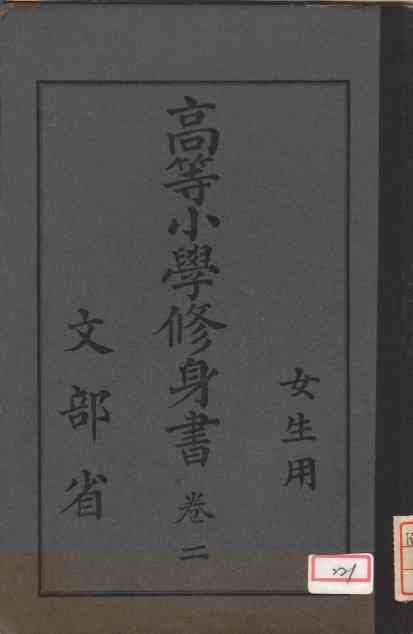 女生用
高等小學修身書 卷二
文部省
221